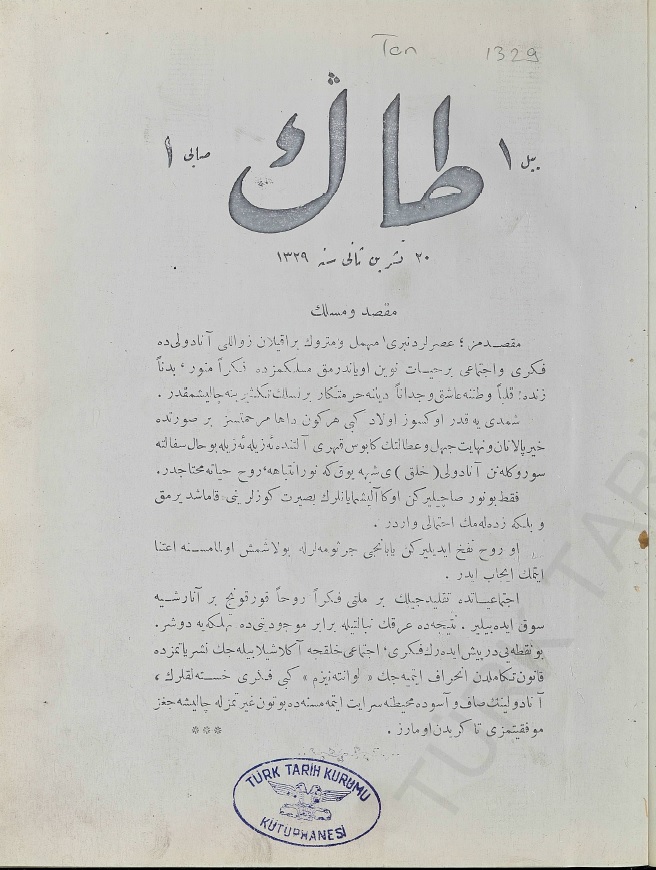 Tan 1329
ييل ١ طاڭ صايى ١
٢٠ تشرين ثانى سنه ١٣٢٩
مقصد و مسلك
مقصدمز؛ عصرلردنبرى مهمل و متروك براقيلان زواللى آنادولى ده
فكرى و اجتماعى بر حسيات نوين اوياندرمق مسلكمزده فكراً منور، بدناً
زنده؛ قلباً وطننه عاشق و جداناً ديننه حرمتكار بر نسلك تكثيرينه چاليشمقدر .
شمدى يه قدر اوكسوز اولاد كبى هركون داها مرحمتسز بر صورتده
خيرپالانان و نهايت جهل و عطالتك كابوس قهرى آلتنده ئه زيله ئه زيله بو حال سفالته
سوروكله نن آنادولى ( خلقى ) شبهه يوق كه نور انتباهه، روح حياته محتاجدر.
فقط بو نور صاچيليركن اوكا آليشمايانلرك بصيرت كوزلرينى قاماشديرمق
و بلكه زده له مك احتمالى واردر .
او روح نفخ ايديليركن يابانجى جرثومه لرله بولاشمش اولمامسنه اعتنا
ايتمك ايجاب ايدر .
اجتماعياتده تقليدجيلك بر ملتى فكراً روحاً قورقونج بر آنارشيه
سوق ايده بيلير . نتيجه ده عرقك نبالتيله برابر موجوديتى ده تهلكه يه دوشر.
بو نقطه يى درپيش ايده رك فكرى، اجتماعى خلقجه آكلاشيلابيله جك نشرياتمزده
قانون تكاملدن انحراف ايتميه جك « لوانته نيزم » كبى فكرى خسته لقلرك ،
آنادولينك صاف و آسوده محيطنه سرايت ايتمه مسنه ده بوتون غيرتمزله چاليشه جغز
موفقيتمزى تاكريدن اومارز . ***
TÜRK TARİH KURUMU
KÜTÜPHANESİ
TÜRK TARİ